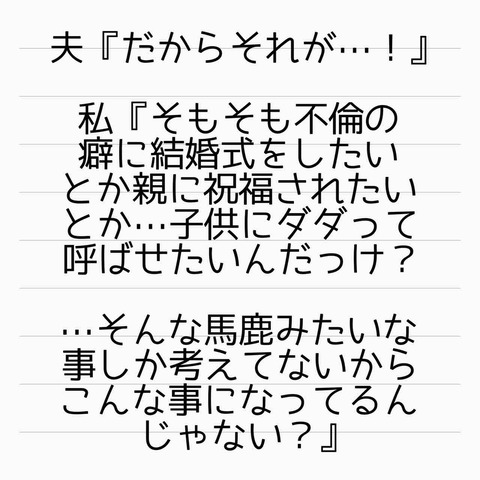 夫『だからそれが…！』
私『そもそも不倫の
癖に結婚式をしたい
とか親に祝福されたい
とか…子供にダダって
呼ばせたいんだっけ？
…そんな馬鹿みたいな
事しか考えてないから
こんな事になってるん
じゃない？』